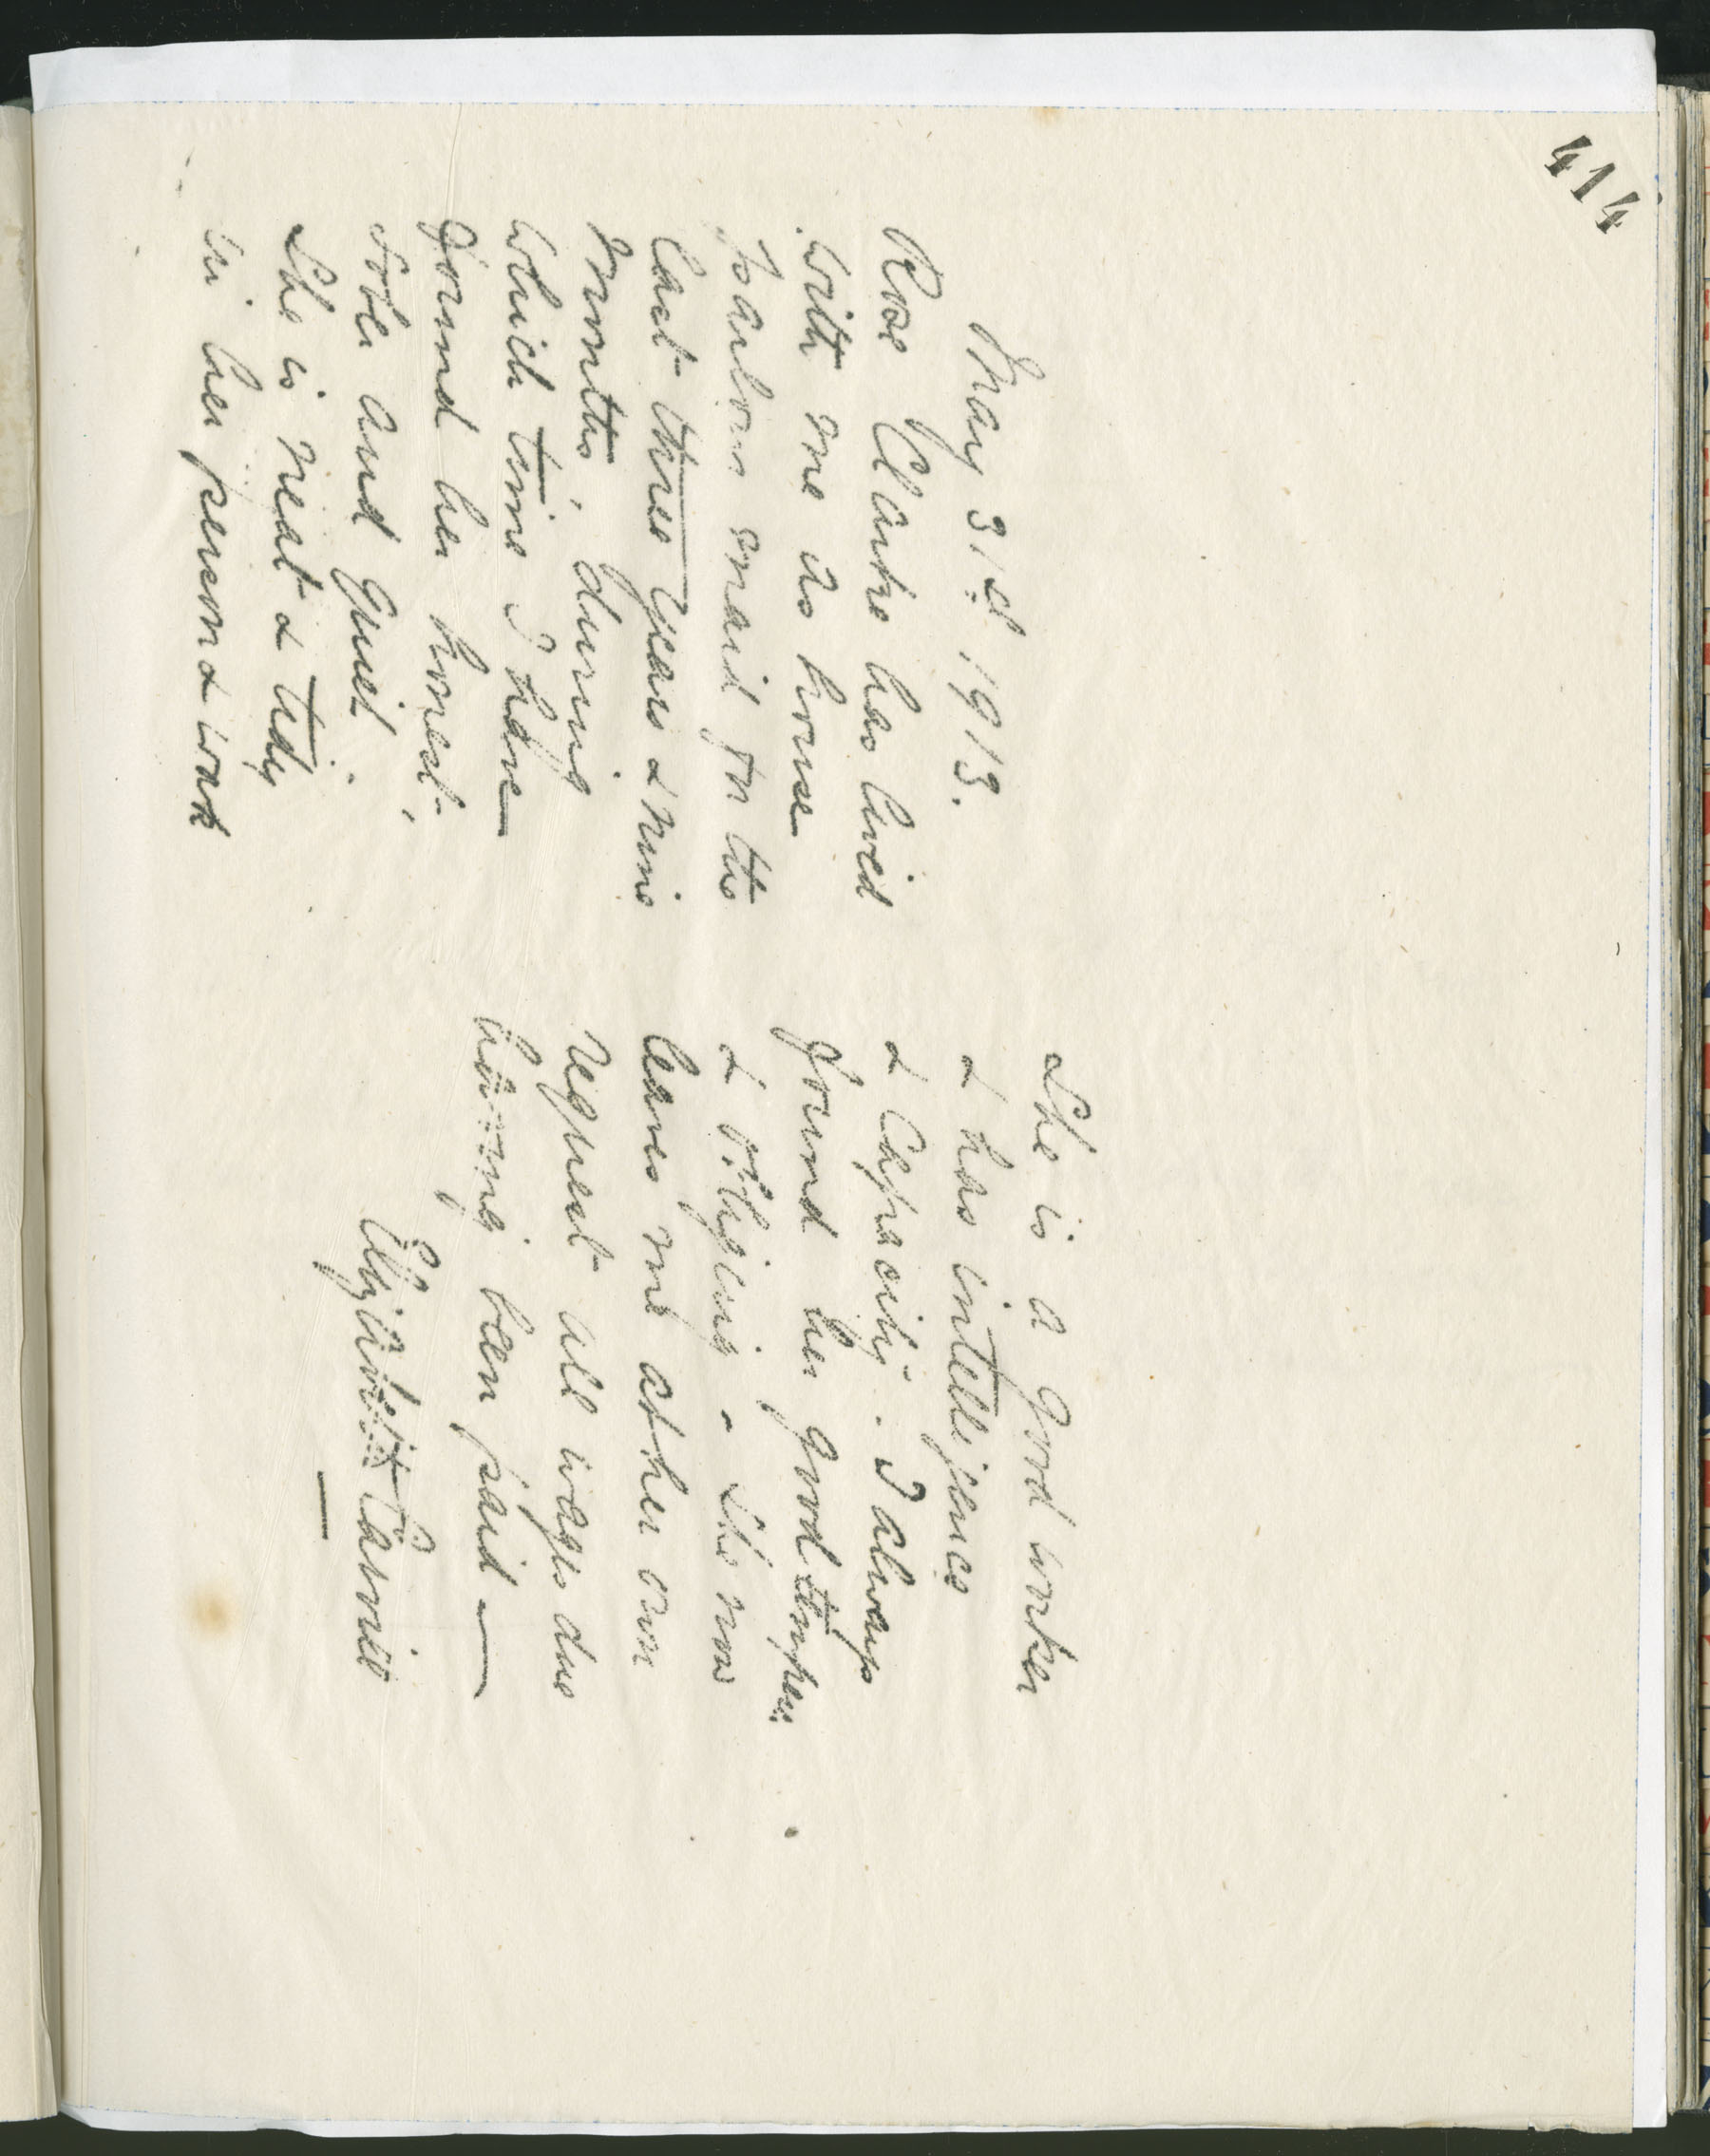 414
May 31st 1913.
Rose Clarke has lived
with me as house
parlour maid for the
last three years & nine
months, during
which time I have
found her honest,
sober and quiet.
She is neat & tidy
in her person & work
She is a good worker
& has intelligence
& capacity. I always
found her good temper
& obliging - She now
leaves me at her own
request all wages due
having been paid —
Elizabeth